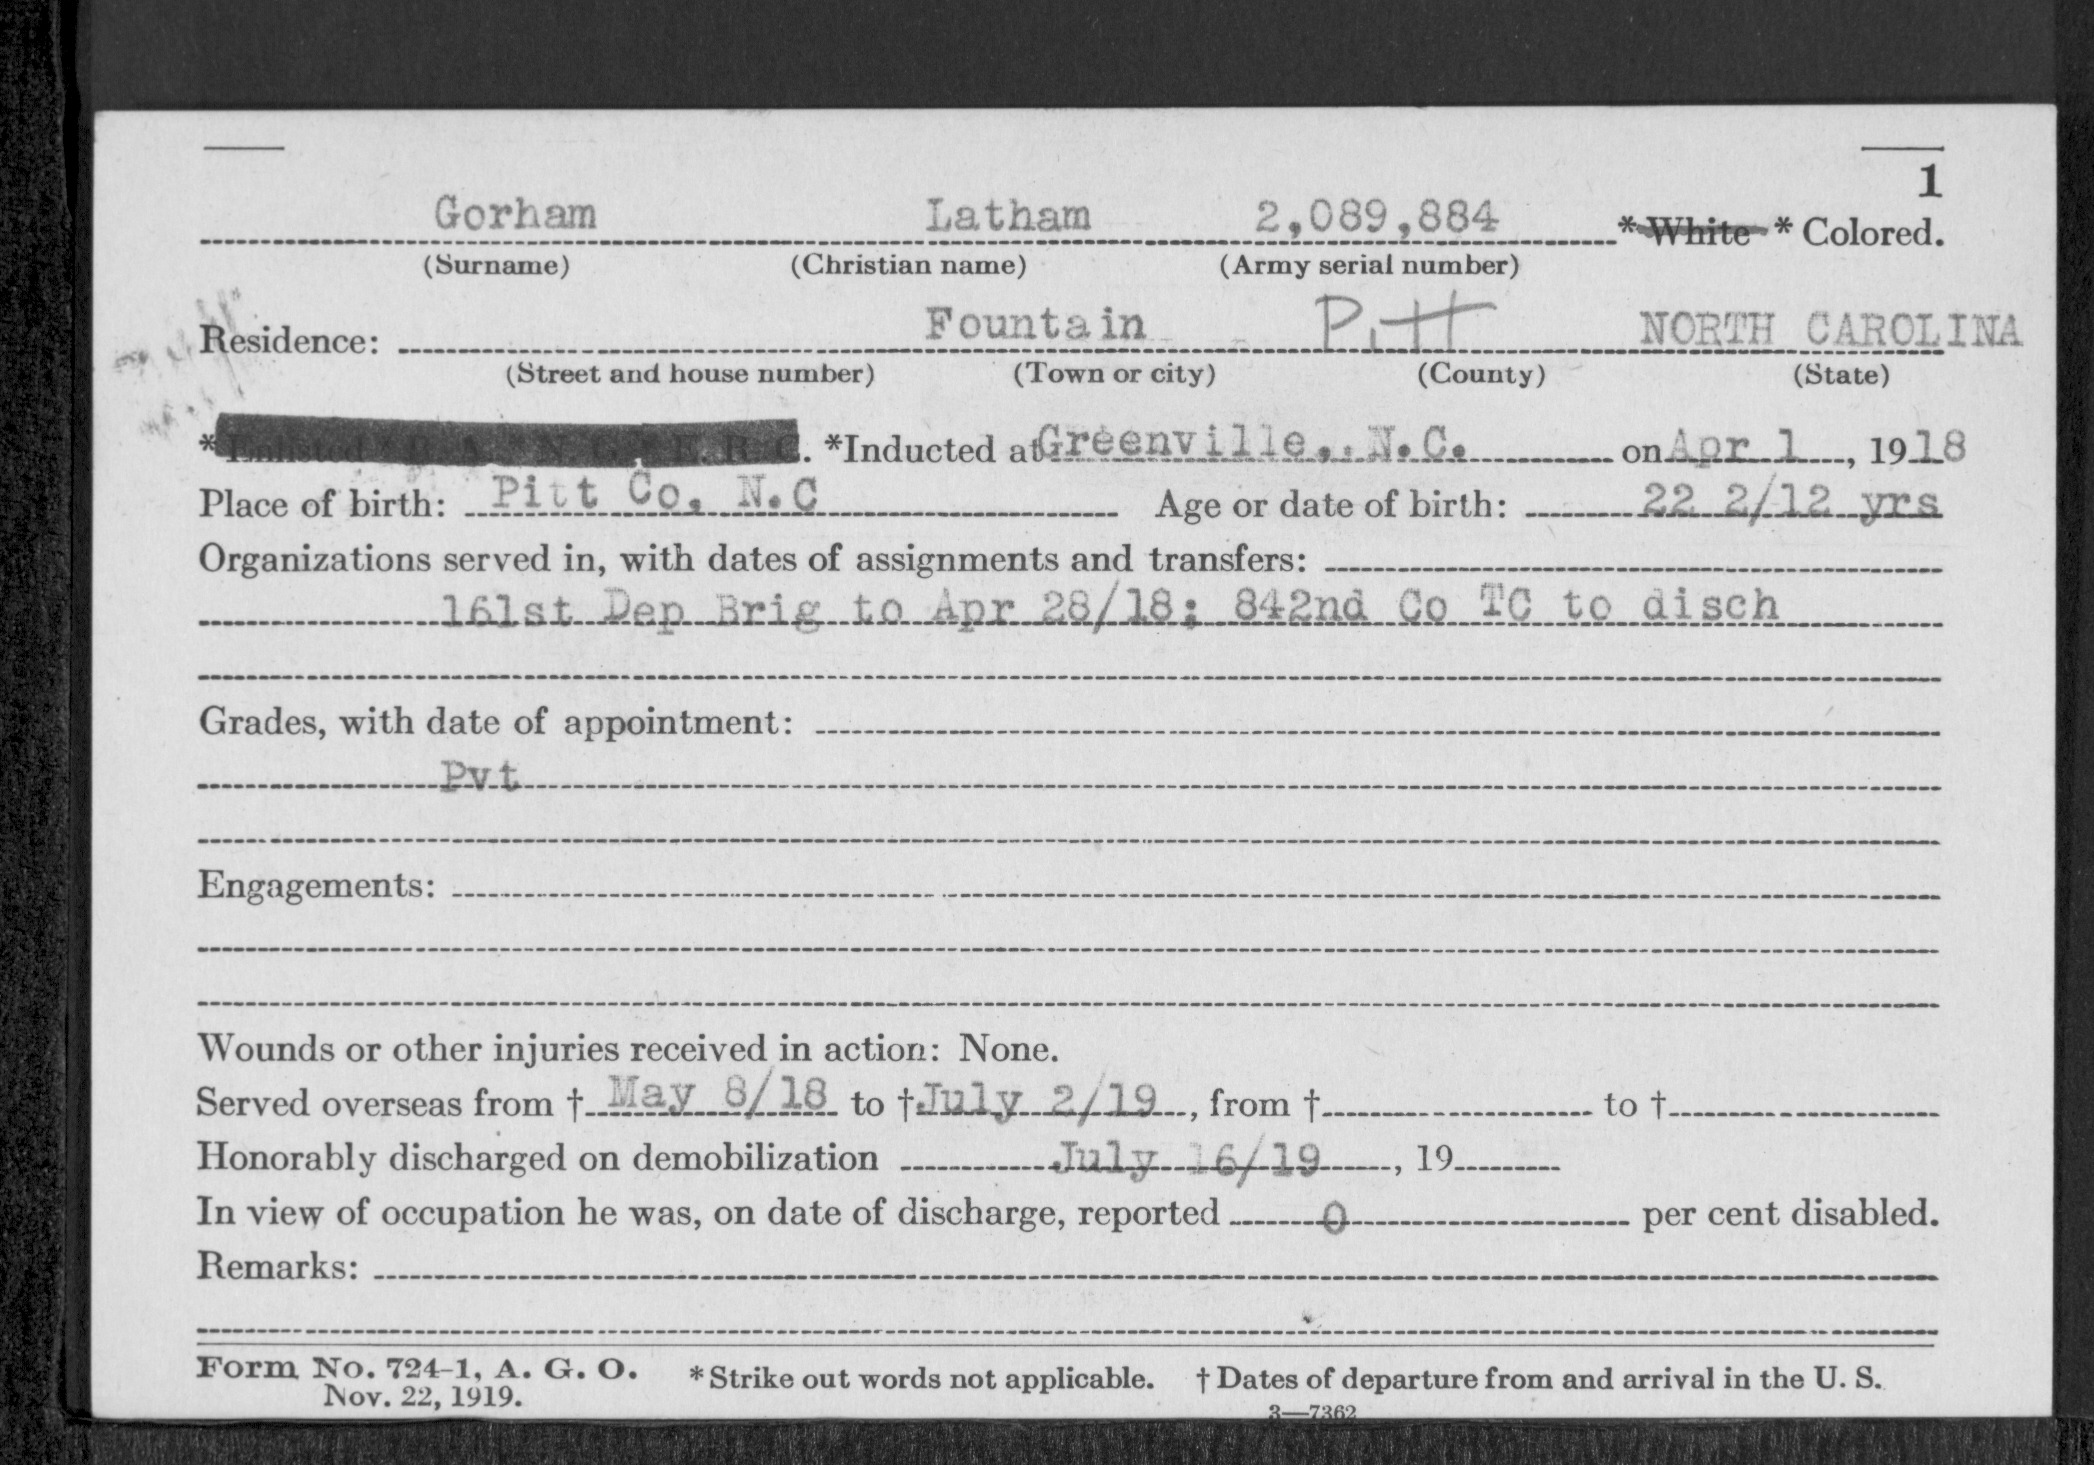 1
Gorham Latham 2,089,884 * White * Colored.
(Surname) (Christian name) (Army serial number)
Residence: Fountain Pitt NORTH CAROLINA
(Street and house number) (Town or city) (County) (State)
* Enlisted * R. A. * N. G. * E. R. C. *Inducted at Greenville, N.C. on Apr 1, 1918
Place of birth: Pitt Co, N.C Age or date of birth: 22 2/12 yrs
Organizations served in, with dates of assignments and transfers:
161st Dep Brig to Apr 28/18; 842nd Co TC to disch
Grades, with date of appointment:
Pvt
Engagements:
Wounds or other injuries received in action: None.
Served overseas from † May 8/18 to † July 2/19, from † to †
Honorably discharged on demobilization July 16/19, 19
In view of occupation he was, on date of discharge, reported 0 per cent disabled.
Remarks:
Form No. 724-1, A. G. O. * Strike out words not applicable. † Dates of departure from and arrival in the U. S.
Nov. 22, 1919.
3—7362